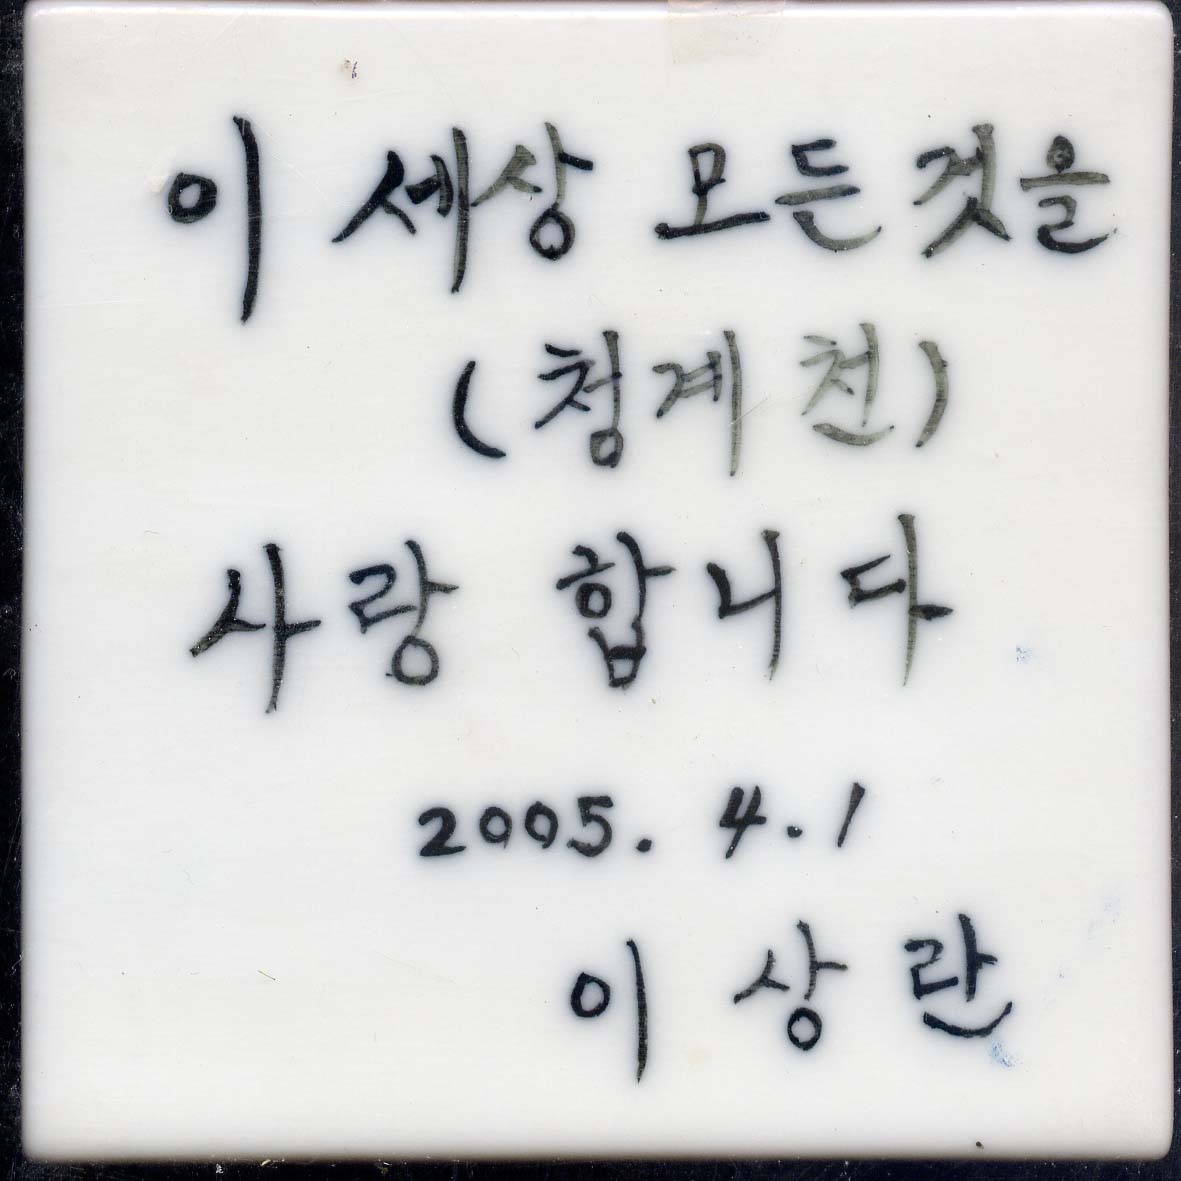 이 세상 모든 것을
(청계천)
사랑 합니다
2005. 4. 1
이 상 란